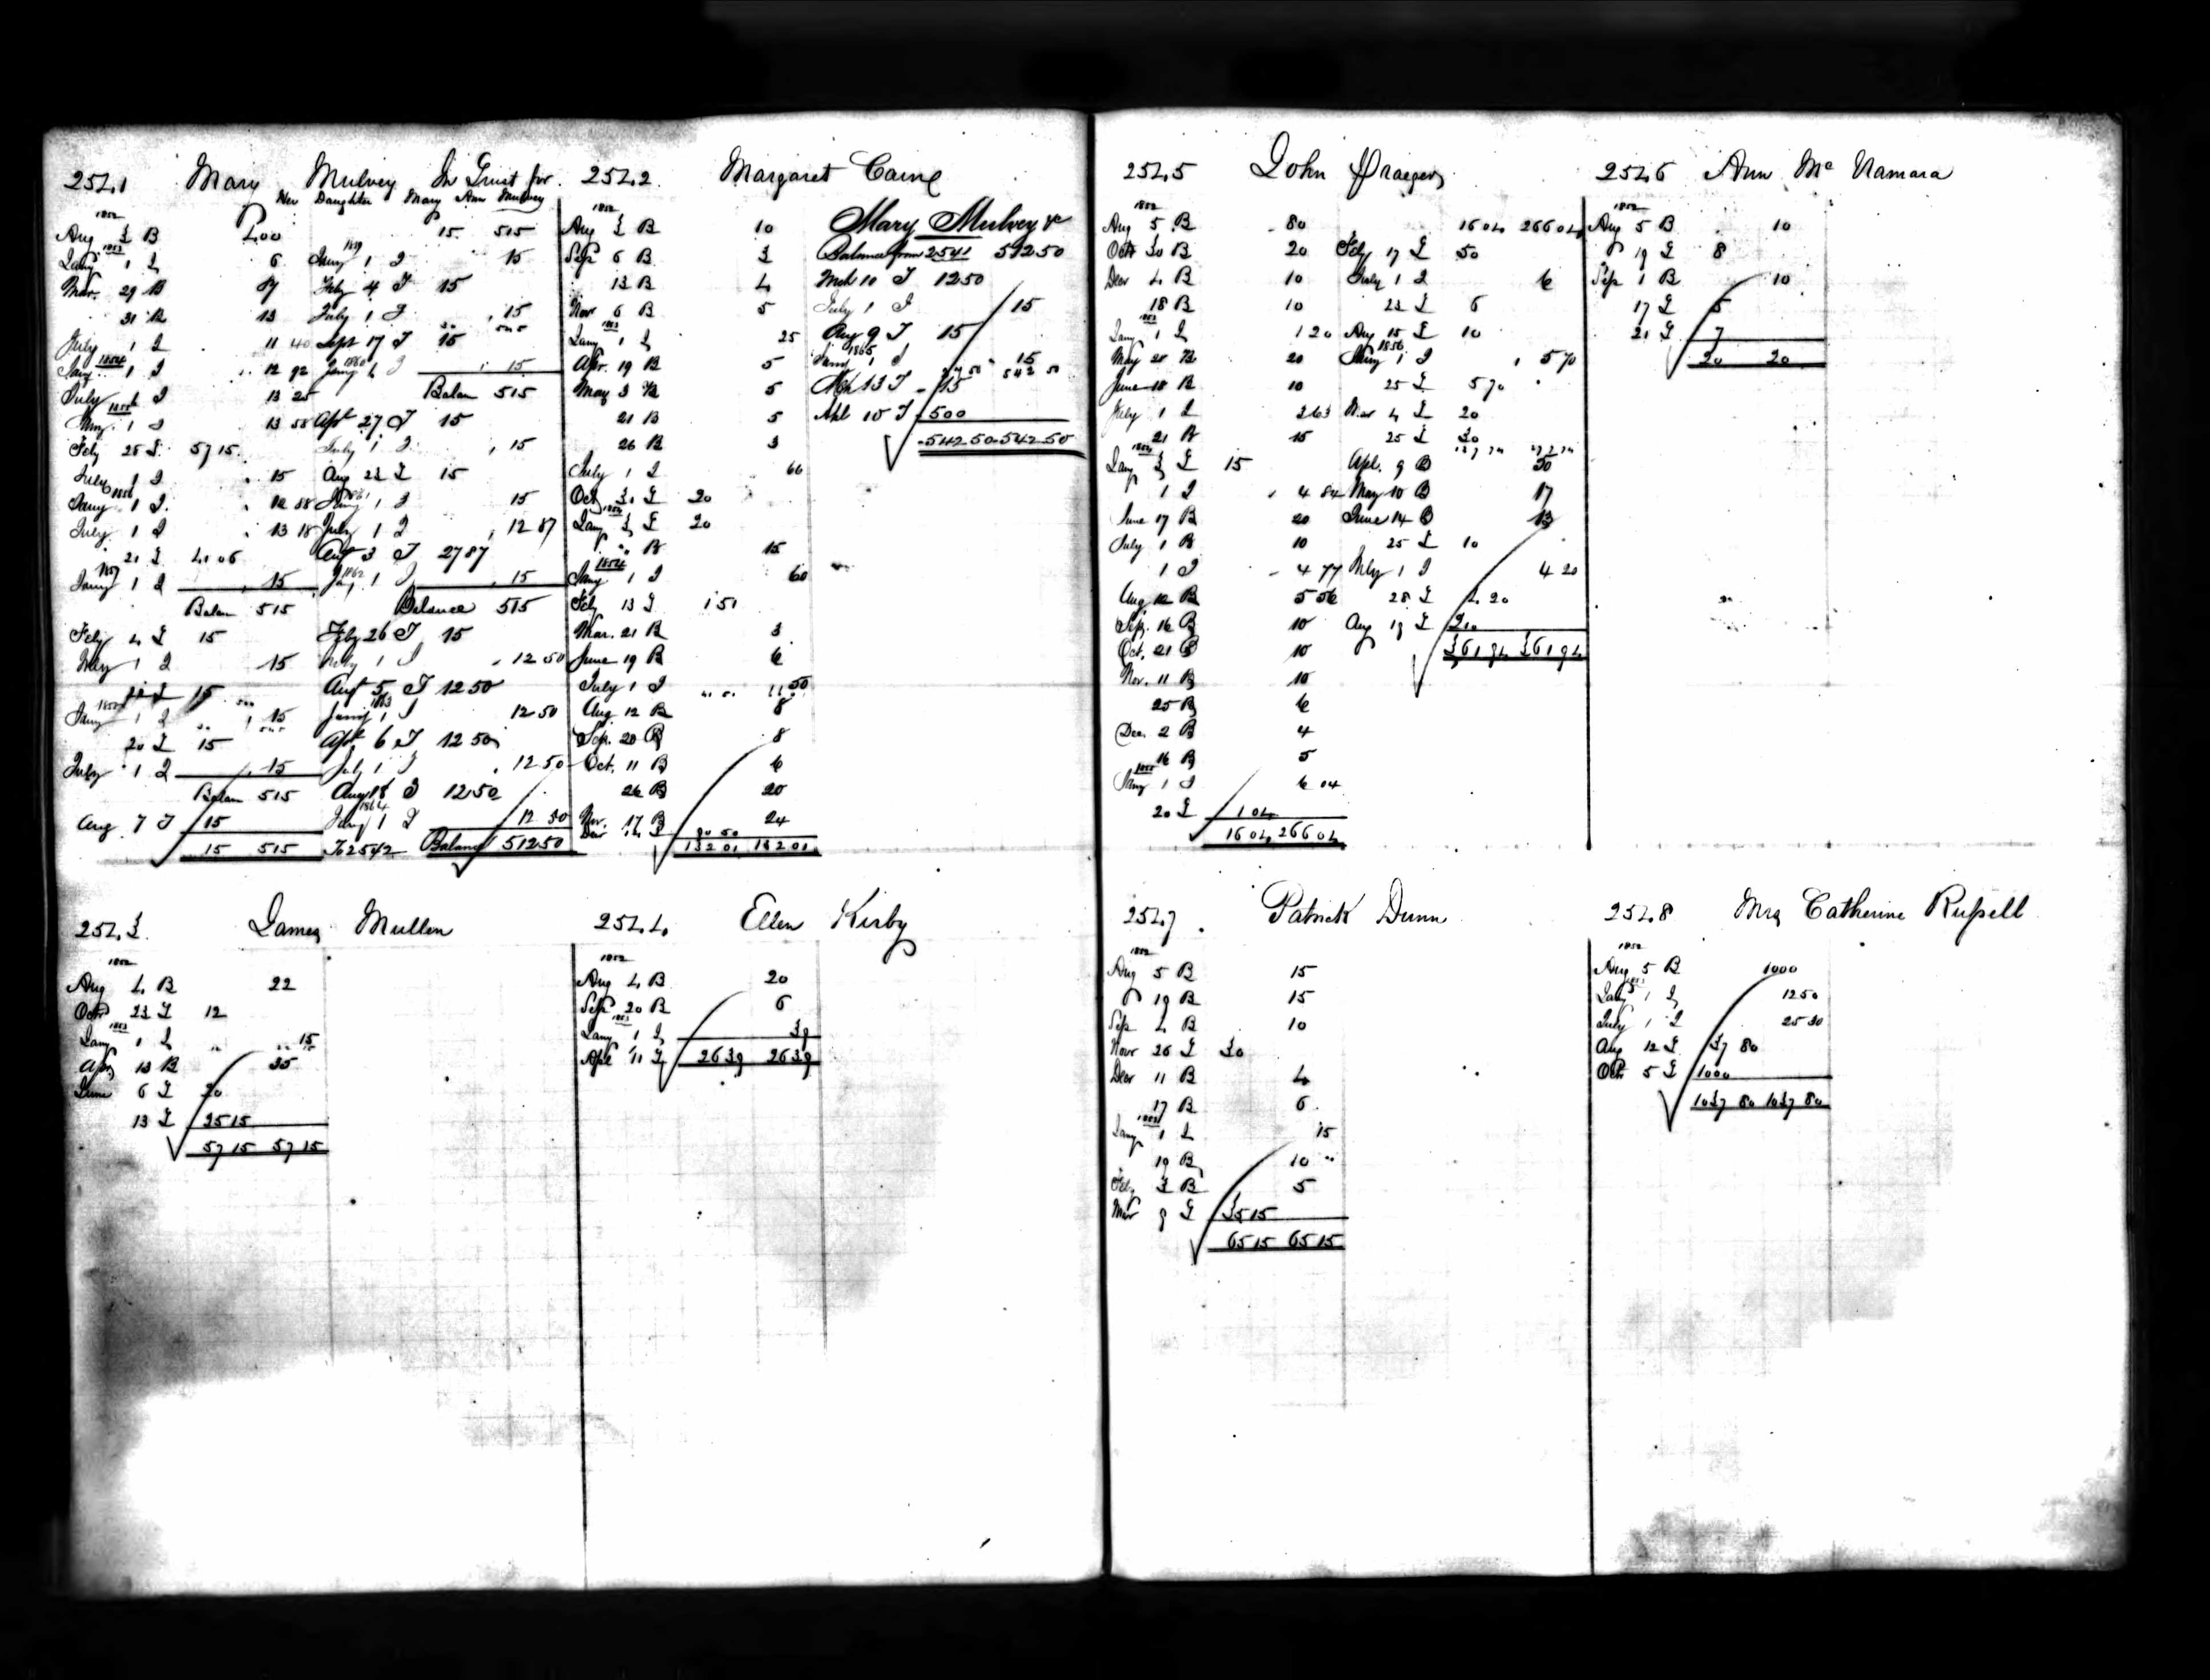 2541 Mary Mulvey In Trust for
Her Daughter Mary Ann Mulvey
1852
Aug 3 B 400
1853
Jany 1 I 6
Mar. 29 B 87
31 B 13
July 1 I 11 40
1854
Jany 1 I 12 92
July 1 I 13 25
1855
Jany 1 I 13 58
Feby 28 I 57 15
July 1 I 15
1856
Jany 1 I 12 88
July 1 I 13 18
21 I 41 06
1857
Jany 1 I 15
Balan 515
Feby 4 I 15
July 1 I 15
15
1858
Jany 1 I 15
20 I 15
July 1 I 15
Balan 515
Aug 7 I 15
15 515
15 515
1859
Jany 1 I 15
Feby 4 I 15
July 1 I 15
Sept 17 I 15
1860
Jany 1 I 15
Balan 515
Apl 27 I 15
July 1 I 15
Aug 23 I 15
1861
Jany 1 I 15
July 1 I 12 87
Augt 3 I 27 87
1862
Jany 1 I 15
Balance 515
Feby 26 I 15
July 1 I 12 50
Augt 5 I 12 50
1863
Jany 1 I 12 50
Apl 6 I 12 50
July 1 I 12 50
Aug 18 I 12 50
1864
Jany 1 I 12 50
To 2542 Balance 512 50
2542 Margaret Caine
1852
Aug 3 B 10
Sep 6 B 3
13 B 4
Nov 6 B 5
1853
Jany 1 I 25
Apr. 19 B 5
May 3 B 5
21 B 5
26 B 3
July 1 I 66
Oct 31 I 20
1854
Jany 3 I 20
B 15
1854
Jany 1 I 60
Feby 13 I 1 51
Mar. 21 B 3
June 19 B 6
July 1 I 50
Aug 12 B 8
Sep. 20 B 8
Oct. 11 B 6
26 B 20
Nov. 17 B 24
Dec. 4 I 90 50
132 01 132 01
Mary Mulvey &c
Balance from 2541 512 50
Mch 10 I 12 50
July 1 I 15
Aug 9 I 15
1865
Jany 1 I 15
Mch 13 I 15
Apl 10 I 500
542 50 542 50
2543 James Mullen
1852
Aug 4 B 22
Octr 23 I 12
1853
Jany 1 I 15
Apr. 13 B 35
June 6 I 20
13 I 25 15
57 15 57 15
2544 Ellen Kirby
1852
Aug 4 B 20
Sep 20 B 6
1853
Jany 1 I 39
Apl 11 I 26 39 26 39
2545 John Praeger
1852
Aug 5 B 80
Octr 30 B 20
Decr 4 B 10
18 B 10
1853
Jany 1 I 1 20
May 28 B 20
June 18 B 10
July 1 I 2 63
21 B 15
1854
Jany 3 I 15
1 I 4 84
June 17 B 20
July 1 B 10
1 I 4 77
Aug. 12 B 5 56
Sep. 16 B 10
Oct. 21 B 10
Nov. 11 B 10
25 B 6
Dec. 2 B 4
16 B 5
1855
Jany 1 I 6 04
20 I 1 04
16 04 266 04
16 04 266 04
Feby 17 I 50
July 1 I 6
23 I 6
Aug 15 I 10
1856
Jany 1 I 5 70
25 I 5 70
Mar 4 I 20
25 I 30
Apl. 9 B 50
May 10 B 17
June 14 B 13
25 I 10
July 1 I 4 20
28 I 4 20
Aug 19 I 210
361 94 361 94
2546 Ann Mc Namara
1852
Aug 5 B 10
" 19 I 8
Sep 1 B 10
17 I 5
21 I 7
20 20
2547 Patrick Dunn
1852
Aug 5 B 15
" 19 B 15
Sep 4 B 10
Novr 26 I 30
Decr 11 B 4
17 B 6
1853
Jany 1 I 15
19 B 10
Feb. 3 B 5
Mar 9 I 35 15
65 15 65 15
2548 Mrs Catherine Russell
1852
Aug 5 B 1000
1853
Jany 1 I 12 50
July 1 I 25 30
Aug 12 I 37 80
Octr 5 I 1000
1037 80 1037 80